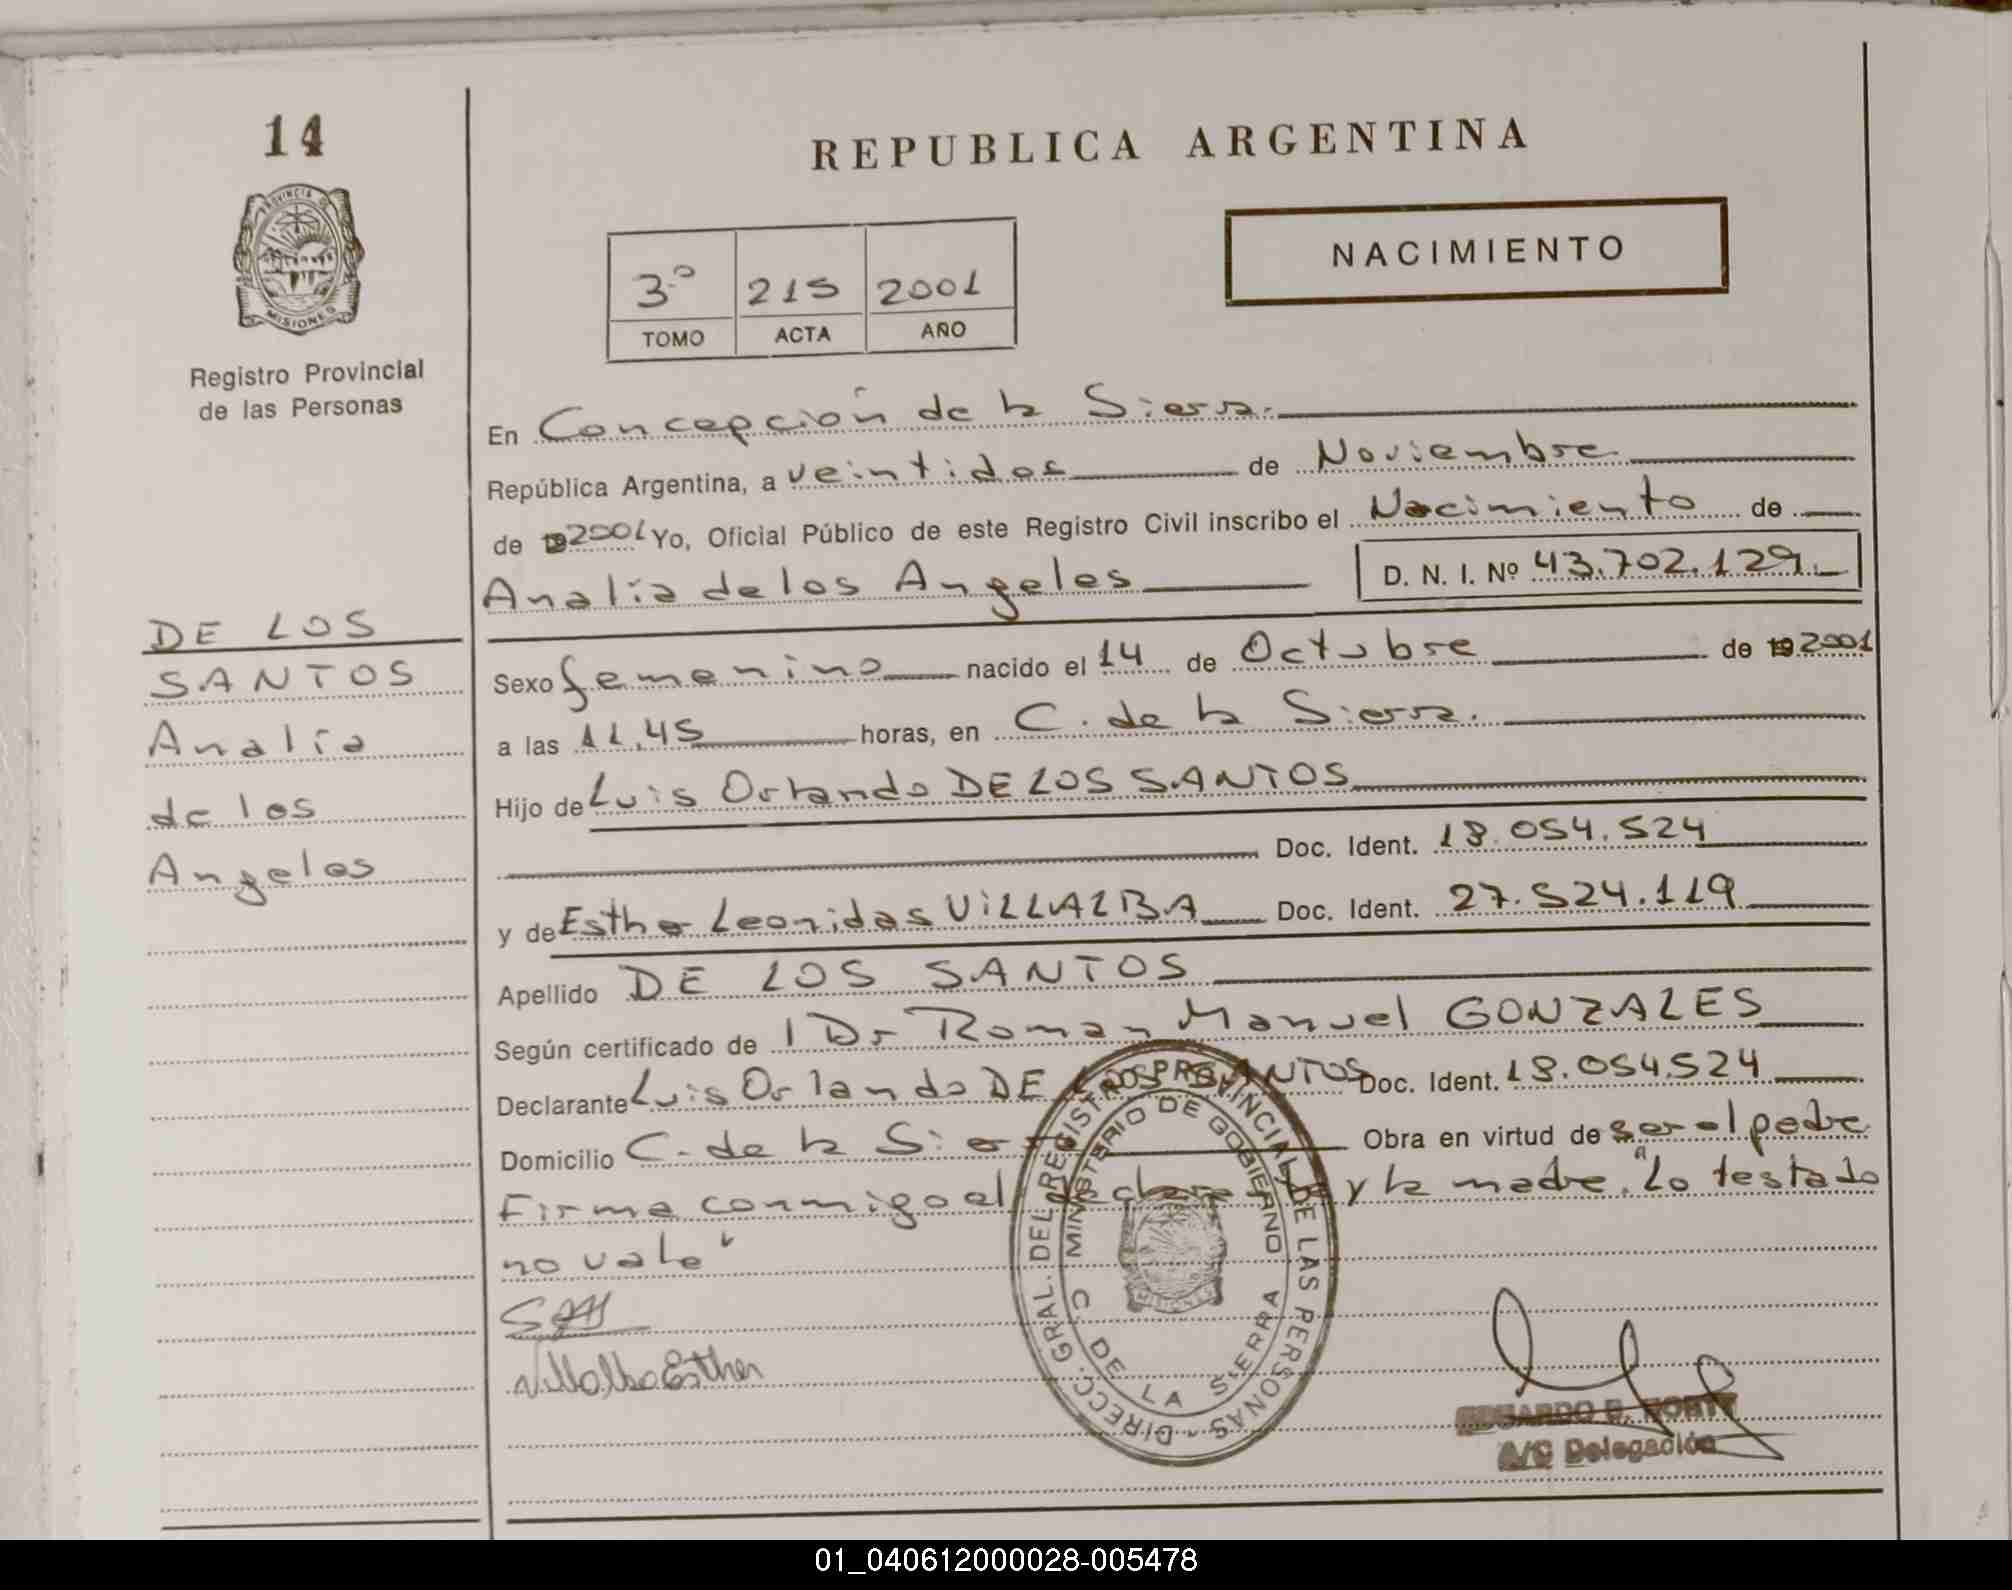 14
PROVINCIA DE
MISIONES
Registro Provincial
de las Personas
DE LOS
SANTOS
Analía
de los
Angeles
REPUBLICA ARGENTINA
NACIMIENTO
3º 215 2001
TOMO ACTA AÑO
En Concepción de la Sierra.
República Argentina, a veintidos de Noviembre
de 19 2001 Yo, Oficial Público de este Registro Civil inscribo el Nacimiento de
Analía de los Angeles D. N. I. Nº 43.702.129.
Sexo femenino nacido el 14 de Octubre de 19 2001
a las 11,45 horas, en C. de la Sierra.
Hijo de Luis Orlando DE LOS SANTOS
Doc. Ident. 18.054.524
y de Esther Leonidas VILLALBA Doc. Ident. 27.524.119
Apellido DE LOS SANTOS
Según certificado de l Dr Roman Manuel GONZALES
Declarante Luis Orlando DE LOS SANTOS Doc. Ident. 18.054.524
Domicilio C. de la Sierra Obra en virtud de ser el padre
Firma conmigo el declarante y la madre. "Lo testado
no vale"
Villalba Esther
DIRECC. GRAL. DEL REGISTRO PROVINCIAL DE LAS PERSONAS
MINISTERIO DE GOBIERNO
C. DE LA SIERRA
MISIONES
EDUARDO
A/C Delegación
01_040612000028-005478